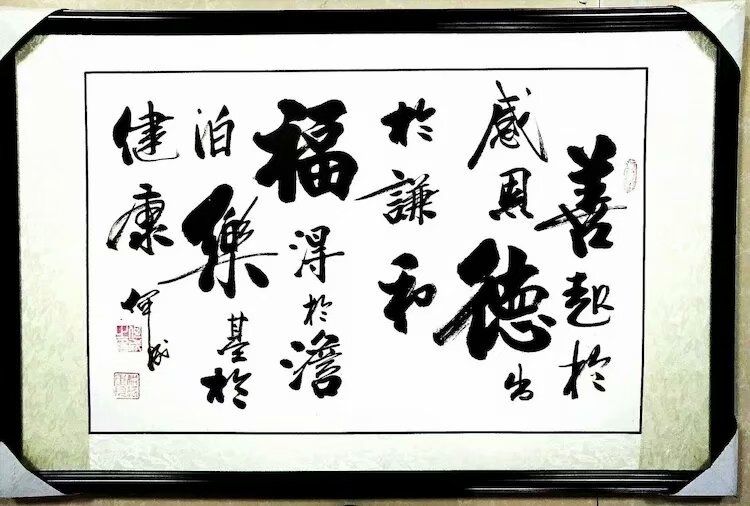 善起於
感恩德出
於謙和
福得於澹
泊樂基於
健康